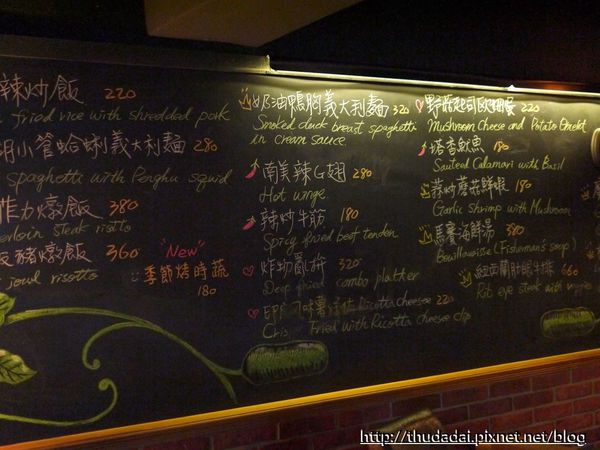 辣炒飯 220
fried rice with shredded pork
小管蛤蜊義大利麵 280
spaghetti with Penghu squid
菲力燉飯 380
steak risotto
豬燉飯 360
jowl risotto
"New"
季節烤時蔬
180
奶油鴨胸義大利麵 320
Smoked duck breast spaghetti
in cream sauce
南美辣G翅 280
Hot wings
辣炒牛筋 180
Spicy fried beef tendon
炸物拼 320
Deep fried combo platter
Ricotta cheese 220
Fried with Ricotta cheese dip
野菇起司歐姆蛋 220
Mushroom Cheese and Potato Omelet
塔香魷魚 180
Sauteed Calamari with Basil
蒜炒蘑菇鮮蝦 180
Garlic shrimp with Mushroom
馬賽海鮮湯 380
Bouillavaisse (Fisherman's soup)
肋眼牛排 660
Rib eye steak with veggie
http://thudadai.pixnet.net/blog